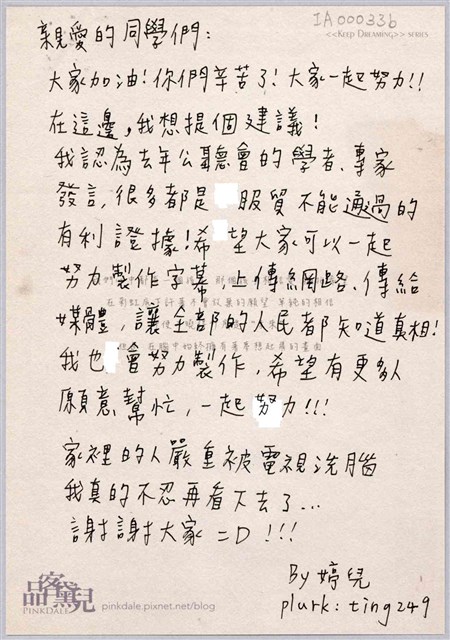 IA000336
<<KEEP DREAMING>> SERIES
親愛的同學們：
大家加油！你們辛苦了！大家一起努力！！
在這邊，我想提個建議！
我認為去年公聽會的學者、專家
發言，很多都是 服貿不能通過的
有利證據！希望大家可以一起
努力製作字幕，上傳網路、傳給
媒體，讓全部的人民都知道真相！
我也會努力製作，希望有更多人
願意幫忙，一起努力！！！
家裡的人嚴重被電視洗腦
我真的不忍再看下去了...
謝謝大家 =D !!!
By 婷兒
plurk: ting249
品客黛兒
PINKDALE
pinkdale.pixnet.net/blog